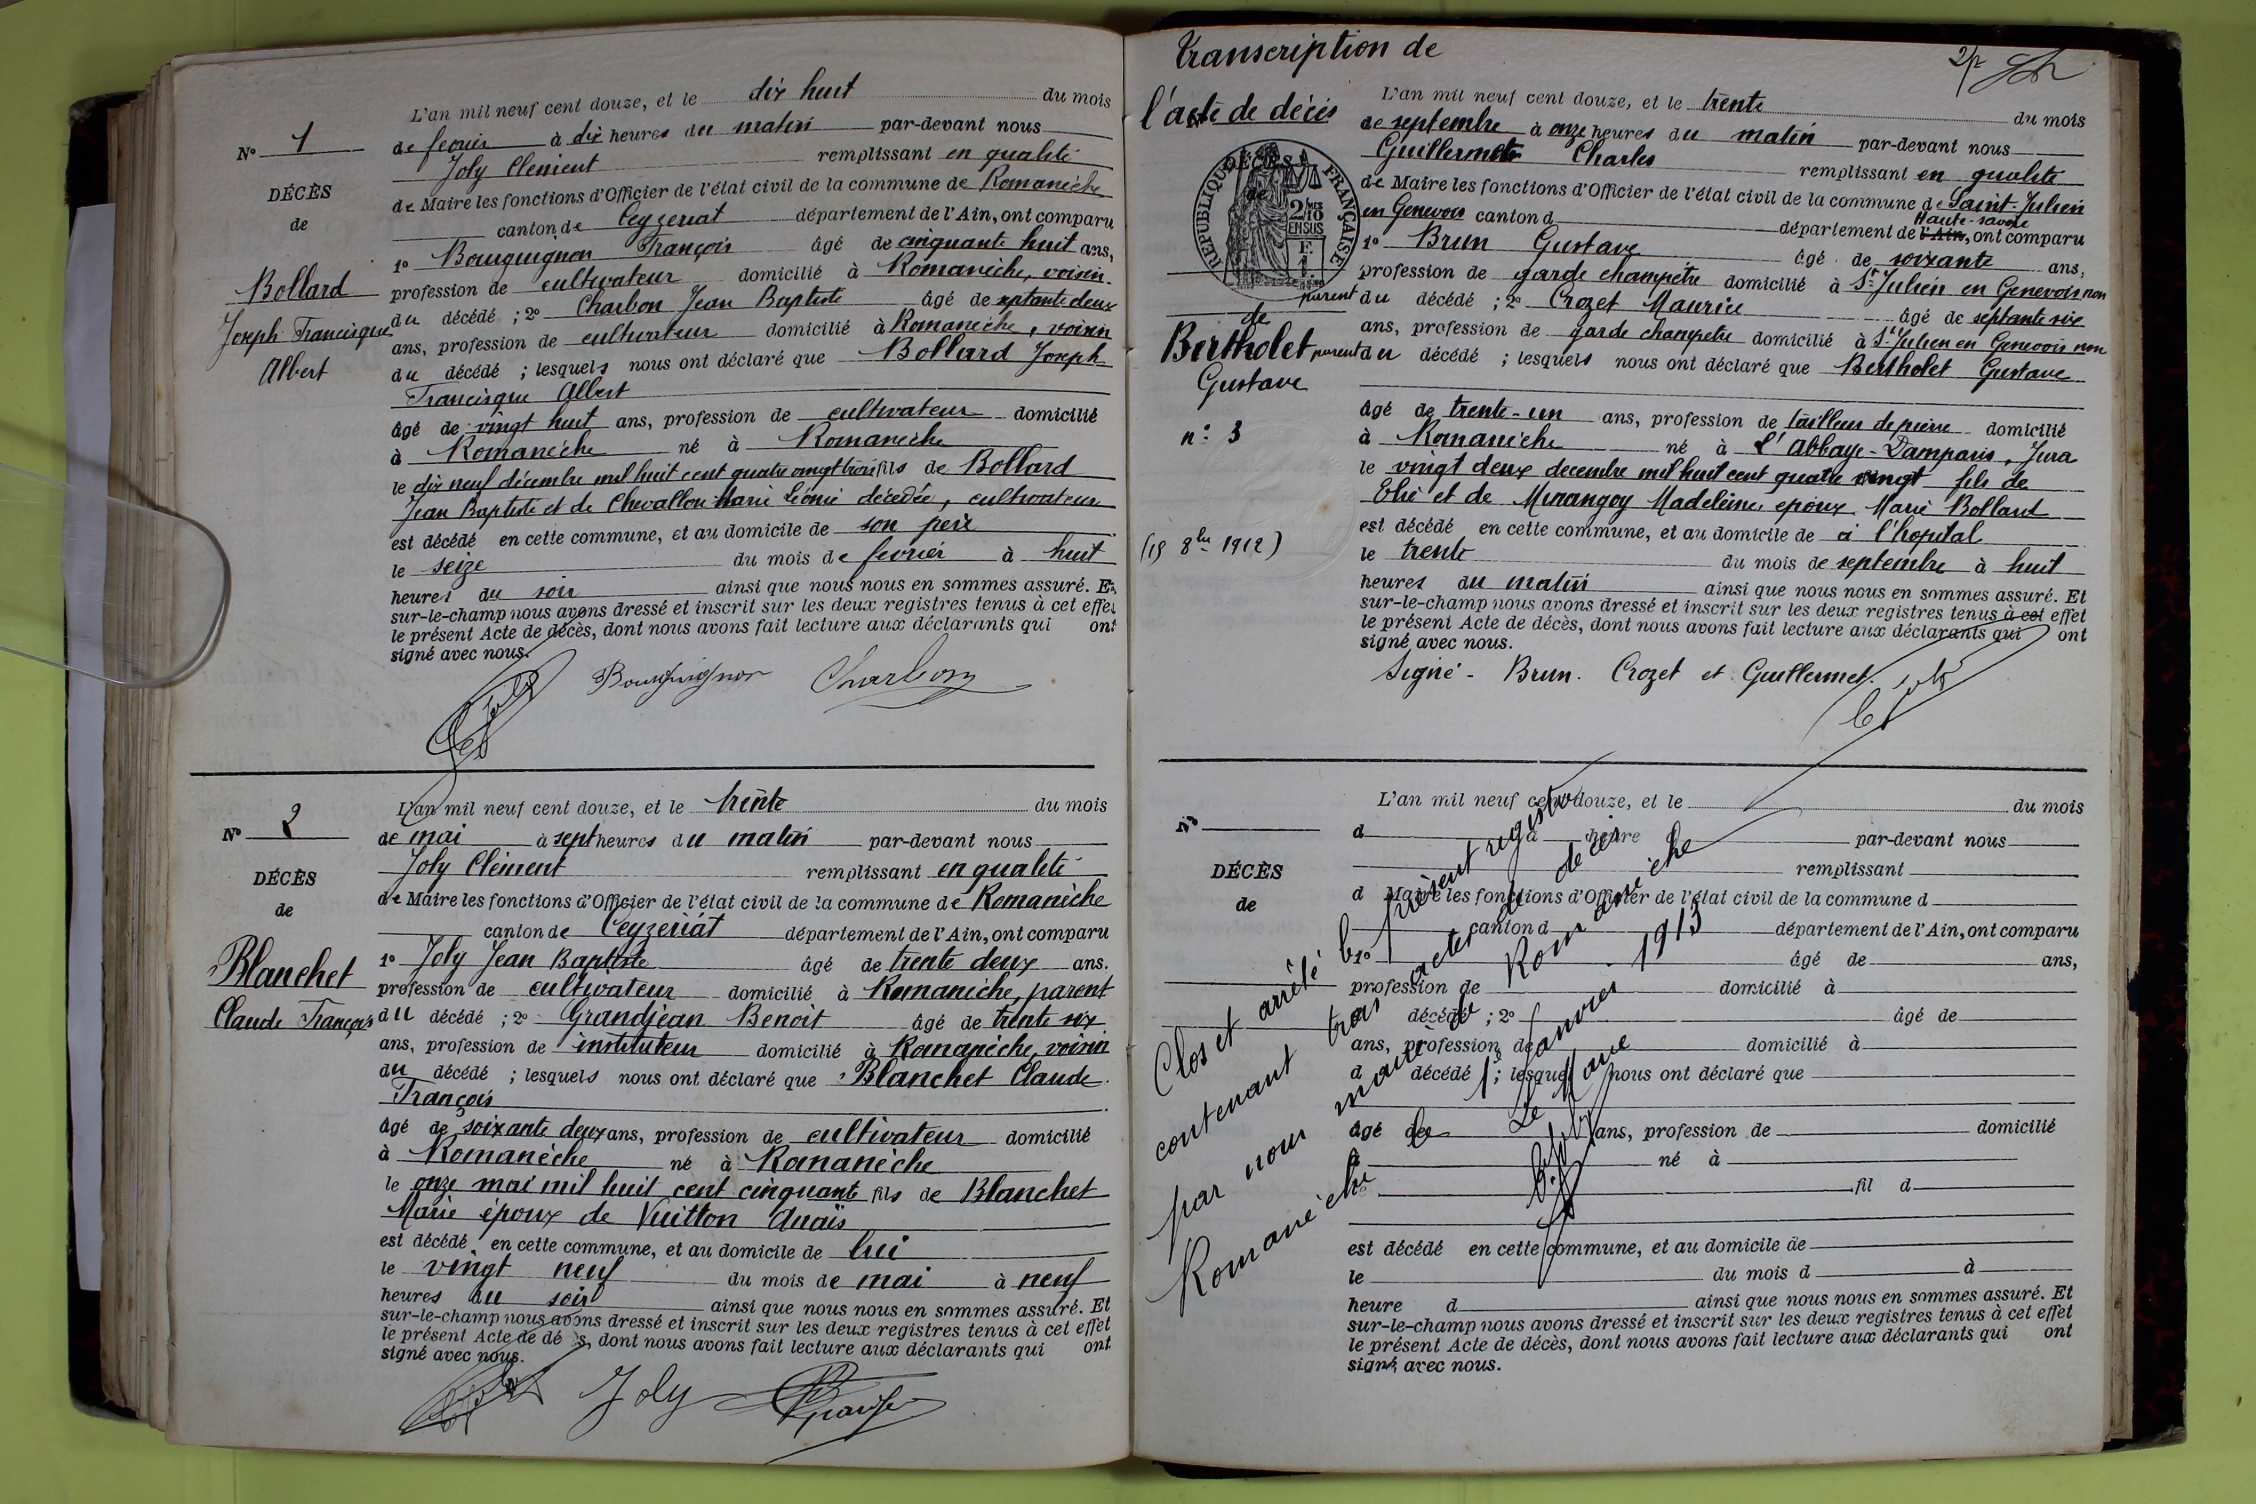 L'an mil neuf cent douze, et le dix huit du mois
N° 1 de fevrier à dix heures du matin par-devant nous
Joly Clément remplissant en qualité
DÉCÈS de Maire les fonctions d'Officier de l'état civil de la commune de Romanèche
de canton de Ceyzeriat département de l'Ain, ont comparu
1° Bourguignon François âgé de cinquante huit ans,
Bollard profession de cultivateur domicilié à Romanèche, voisin
Joseph Francisque du décédé ; 2° Charbon Jean Baptiste âgé de septante deux
Albert ans, profession de cultivateur domicilié à Romanèche, voisin
du décédé ; lesquels nous ont déclaré que Bollard Joseph
Francisque Albert
âgé de vingt huit ans, profession de cultivateur domicilié
à Romanèche né à Romanèche
le dix neuf décembre mil huit cent quatre vingt trois fils de Bollard
Jean Baptiste et de Chevallon Marie Léonie décédée, cultivateur
est décédé en cette commune, et au domicile de son père
le seize du mois de fevrier à huit
heures du soir ainsi que nous nous en sommes assuré. Et
sur-le-champ nous avons dressé et inscrit sur les deux registres tenus à cet effet
le présent Acte de décès, dont nous avons fait lecture aux déclarants qui ont
signé avec nous.
Bourguignon Charbon
L'an mil neuf cent douze, et le trente du mois
N° 2 de mai à sept heures du matin par-devant nous
Joly Clément remplissant en qualité
DÉCÈS de Maire les fonctions d'Officier de l'état civil de la commune de Romanèche
de canton de Ceyzériat département de l'Ain, ont comparu
1° Joly Jean Baptiste âgé de trente deux ans.
Blanchet profession de cultivateur domicilié à Romanèche, parent
Claude François du décédé ; 2° Grandjean Benoit âgé de trente six
ans, profession de instituteur domicilié à Romanèche, voisin
du décédé ; lesquels nous ont déclaré que Blanchet Claude
François
âgé de soixante deux ans, profession de cultivateur domicilié
à Romanèche né à Romanèche
le onze mai mil huit cent cinquante fils de Blanchet
Marie époux de Vuitton Anaïs
est décédé en cette commune, et au domicile de lui
le vingt neuf du mois de mai à neuf
heures du soir ainsi que nous nous en sommes assuré. Et
sur-le-champ nous avons dressé et inscrit sur les deux registres tenus à cet effet
le présent Acte de dé s, dont nous avons fait lecture aux déclarants qui ont
signé avec nous.
Joly
Transcription de
l'acte de décès
2
L'an mil neuf cent douze, et le trente du mois
de septembre à onze heures du matin par-devant nous
Guillermet Charles remplissant en qualité
de Maire les fonctions d'Officier de l'état civil de la commune de Saint-Julien
en Genevois canton d département de l'Ain, Haute-Savoie ont comparu
1° Brun Gustave âgé de soixante ans,
profession de garde champêtre domicilié à St Julien en Genevois non
parent du décédé ; 2° Crozet Maurice âgé de septante six
ans, profession de garde champetre domicilié à St Julien en Genevois non
parent du décédé ; lesquels nous ont déclaré que Bertholet Gustave
DÉCÈS
de
RÉPUBLIQUE FRANÇAISE
2/10 EN SUS
de
Bertholet
Gustave
n° 3
(19 8bre 1912)
âgé de trente-un ans, profession de tailleur de pierre domicilié
à Romanèche né à L'Abbaye-Damparis, Jura
le vingt deux decembre mil huit cent quatre vingt fils de
Elie et de Mirangoy Madeleine, epoux Marie Bollard
est décédé en cette commune, et au domicile de à l'hopital
le trente du mois de septembre à huit
heures du matin ainsi que nous nous en sommes assuré. Et
sur-le-champ nous avons dressé et inscrit sur les deux registres tenus à cet effet
le présent Acte de décès, dont nous avons fait lecture aux déclarants qui ont
signé avec nous.
Signé - Brun. Crozet et Guillermet.
L'an mil neuf cent douze, et le du mois
N° d à heure d par-devant nous
remplissant
DÉCÈS d Maire les fonctions d'Officier de l'état civil de la commune d
de canton d département de l'Ain, ont comparu
1° âgé de ans,
profession de domicilié à
d décédé ; 2° âgé de
ans, profession de domicilié à
d décédé ; lesquel nous ont déclaré que
âgé de ans, profession de domicilié
à né à
le fil d
est décédé en cette commune, et au domicile de
le du mois d à
heure d ainsi que nous nous en sommes assuré. Et
sur-le-champ nous avons dressé et inscrit sur les deux registres tenus à cet effet
le présent Acte de décès, dont nous avons fait lecture aux déclarants qui ont
signé avec nous.
Clos et arrêté le présent registre
contenant trois actes de décès
par nous maire de Romanèche
Romanèche le 1er Janvier 1913
Le Maire